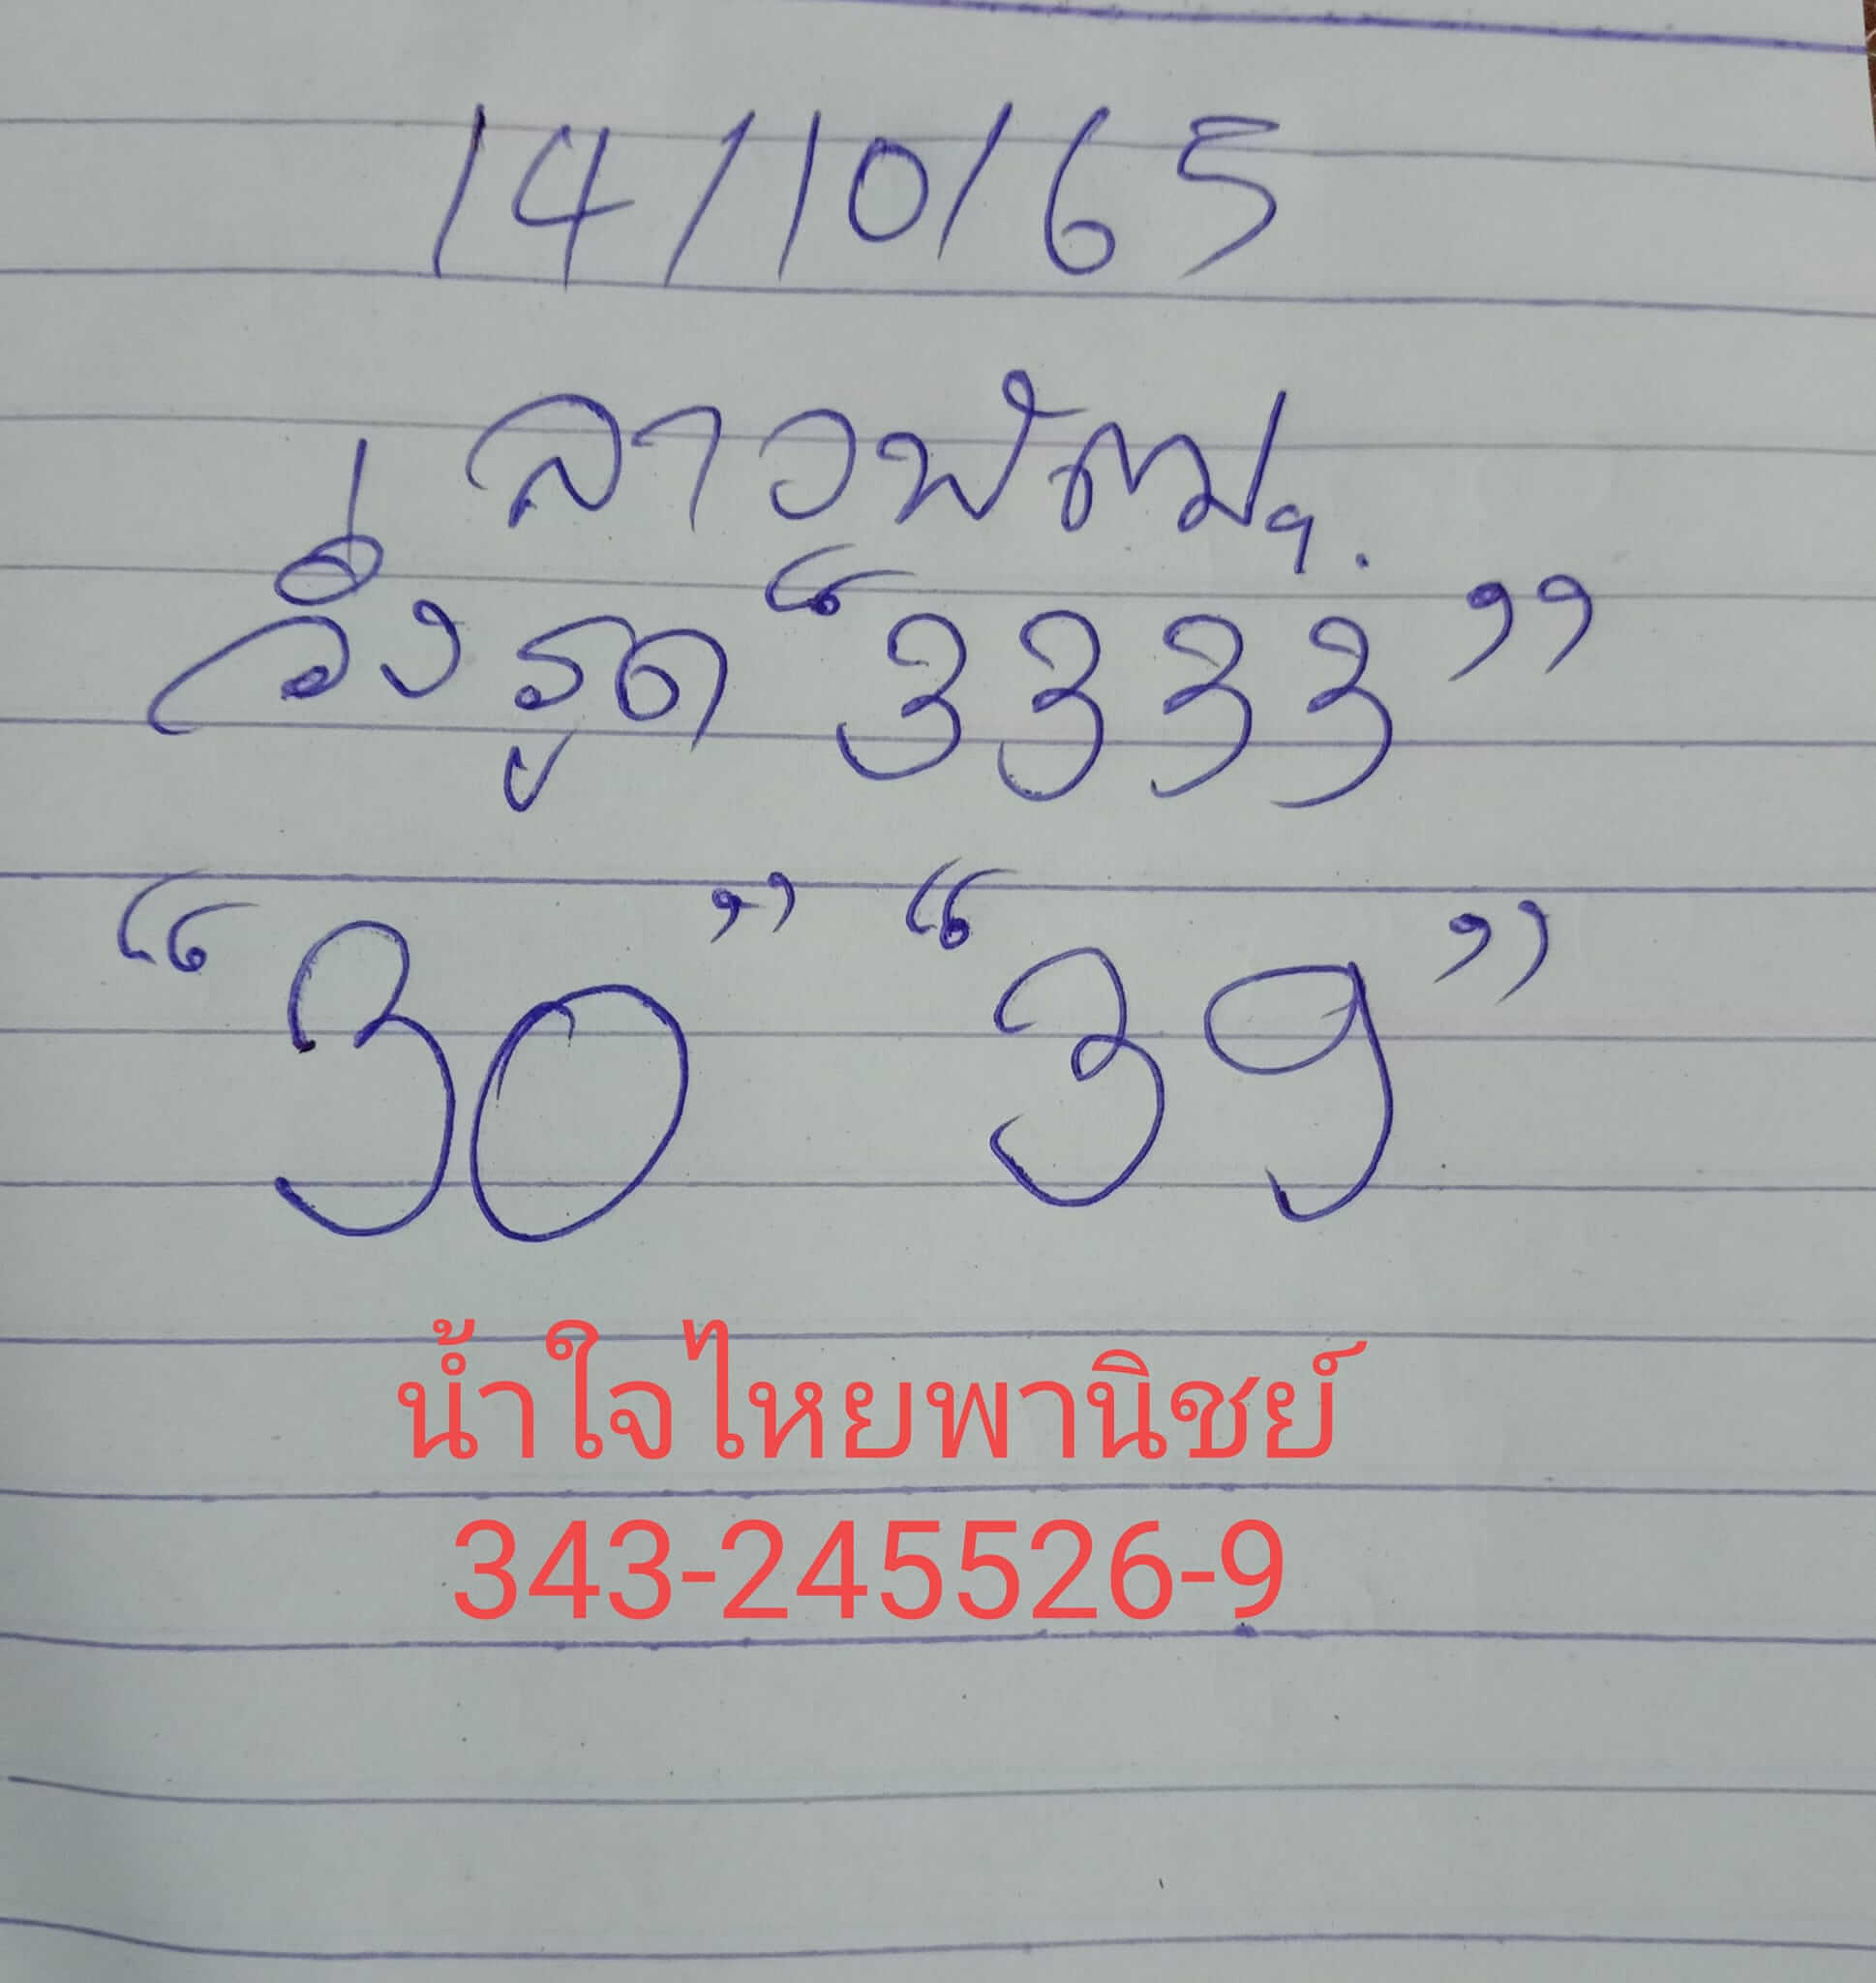 14/10/65
ลาวพัฒนฯ.
วิ่งรูด “3333”
“30” “39”
น้ำใจไหยพานิชย์
343-245526-9